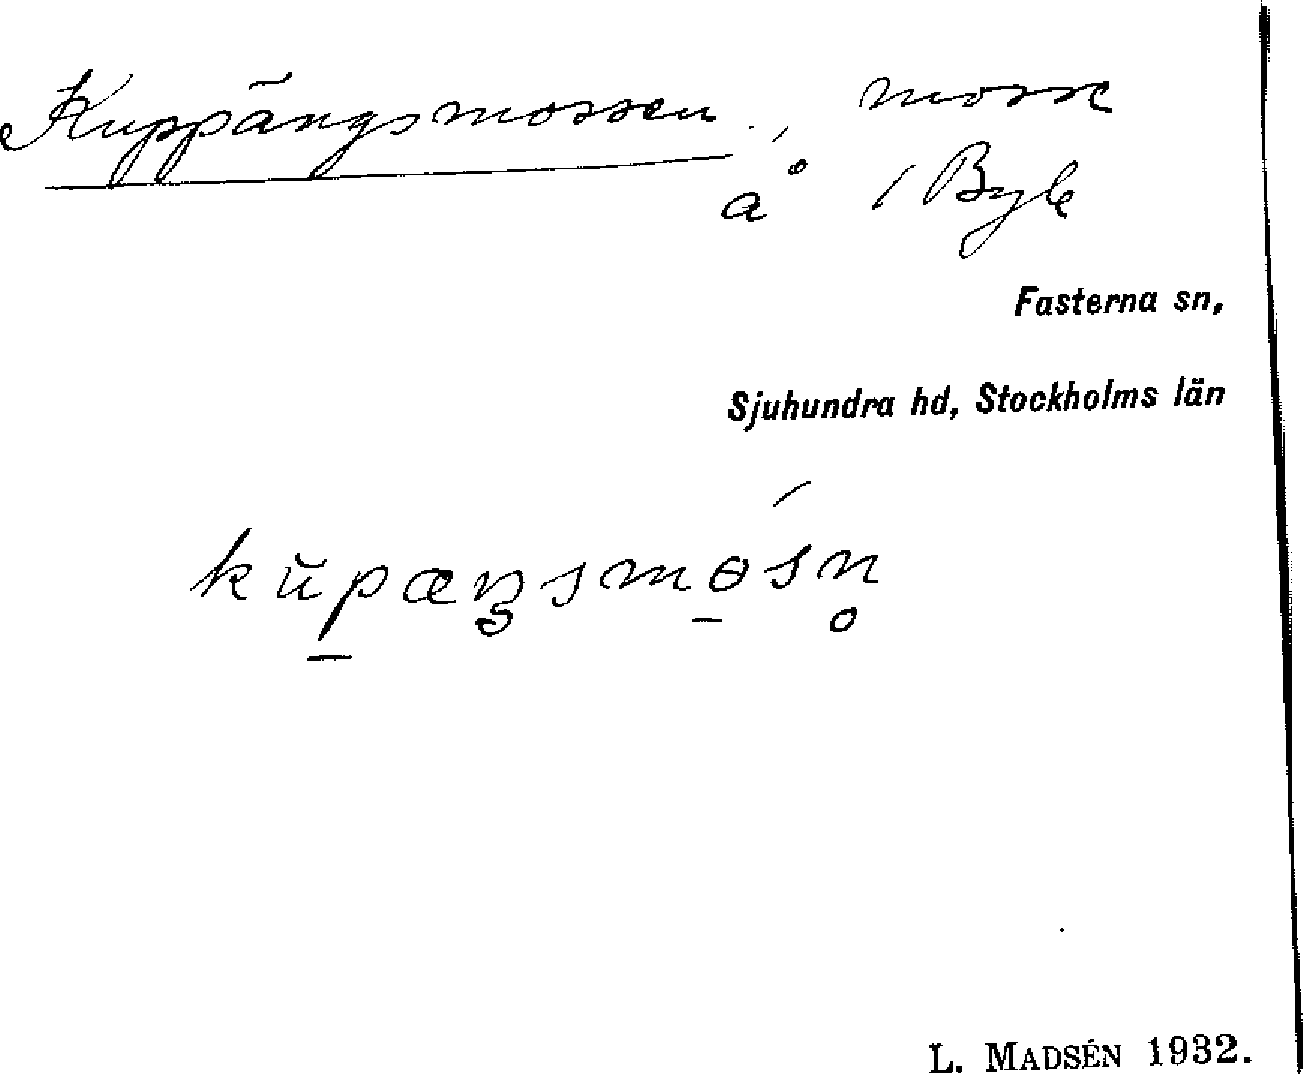 Kuppängsmossen, mosse
å i Byle
Fasterna sn,
Sjuhundra hd, Stockholms län
L. MADSÉN 1932.